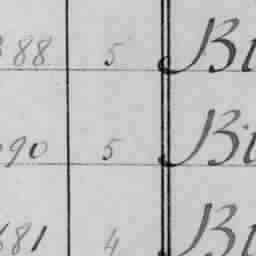 88 5 Bi
90 5 Bi
681 4 Bi